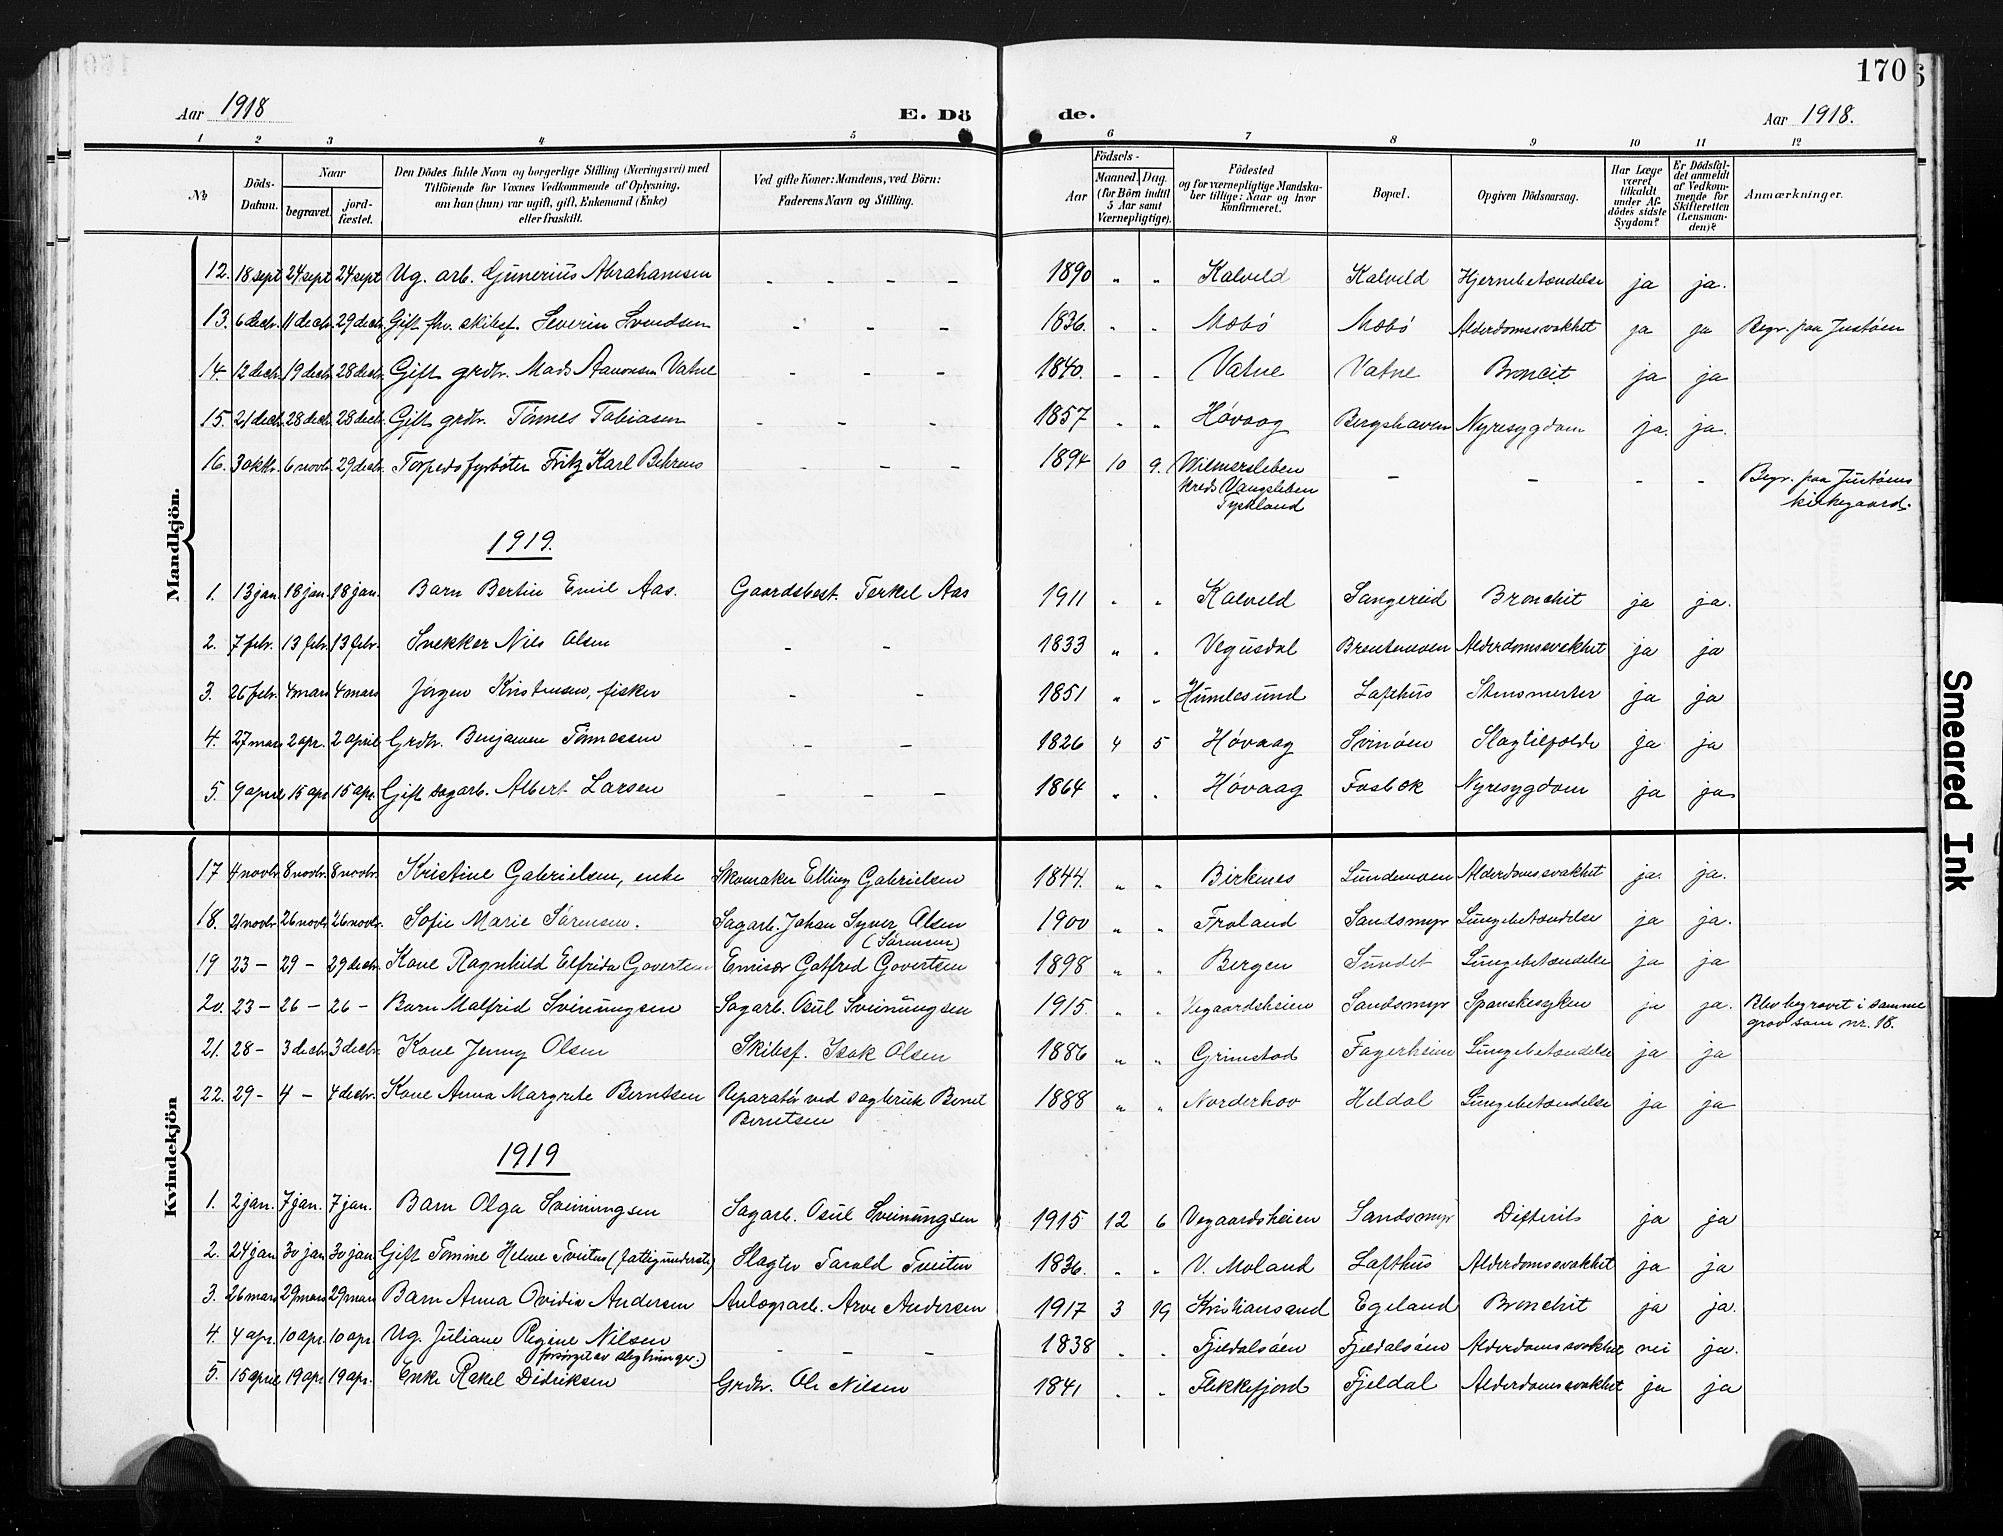 170
Aar 1918
E. Dö de.
Aar 1918.
1 2 3 4 5 6 7 8 9 10 11 12
No
Döds-Datum.
Naar
begravet.
jord-fæstet.
Den Dödes fulde Navn og borgerlige Stilling (Næringsvei) med
Tilföiende for Voxnes Vedkommende af Oplysning,
om han (hun) var ugift, gift, Enkemand (Enke)
eller fraskilt.
Ved gifte Koner: Mandens, ved Börn:
Faderens Navn og Stilling.
Födsels-
Aar
Maaned. Dag.
(for Börn indtil
5 Aar samt
Værnepligtige).
Födested
og for værnepligtige Mandska-
ber tillige: Naar og hvor
konfirmeret.
Bopæl.
Opgiven Dödsaarsag.
Har Læge
været
tilkaldt
under Af-
dödes sidste
Sygdom?
Er Dödsfal-
det anmeldt
af Vedkom-
mende for
Skifteretten
(Lensman-
den)?
Anmærkninger.
Mandkjön.
12. 18 sept 24 sept 24 sept Ug. arb. Gunerius Abrahamsen - - - - 1890 " " Kalveld Kalveld Hjernebetændelse ja ja.
13. 6 decbr. 11 decbr. 29 decbr. Gift fhv. skibsf. Severin Svendsen - - - 1836. " " Mæbö Mæbö Alderdomssvakhet ja ja Begr. paa Justöen
14. 12 decbr. 19 decbr. 28 decbr. Gift grdbr. Mads Aanonsen Vatne - - - 1840. - - Vatne Vatne Broncit ja ja
15. 21 decbr. 28 decbr. 28 decbr. Gift grdbr. Tönnes Tobiassen - - - 1857 " " Hövaag Bergshaven Nyresygdom ja. ja.
16. 3 oktbr. 6 novbr. 29 decbr. Torpedofyrböter Fritz Karl Behrens - - - 1894 10 9. Wilmersleben - - - - Begr. paa Justöens
kreds Vangsleben kirkegaard.
Tyskland
1919.
1. 13 jan. 18 jan. 18 jan. Barn Bertin Emil Aas. Gaardsbest. Terkel Aas 1911 " " Kalveld Sangereid Bronchit ja ja.
2. 7 febr. 13 febr. 13 febr. Snekker Nils Olsen - - 1833 " " Vegusdal Brentemoen Alderdomssvakhet ja ja
3. 26 febr. 4 mars 4 mars Jörgen Kristensen, fisker - - 1851 " " Humlesund Lofthus Stensmerter ja ja
4. 27 mars 2 apr. 2 april Grdbr. Benjamen Tönnessen - - 1826 4 5 Hövaag Svinöen Slagtilfælde ja ja
5. 9 april 15 apr. 15 apr. Gift sagarb. Albert Larsen - - - 1864 " " Hövaag Fosbæk Nyresygdom ja ja
Kvindekjön
17 4 novbr. 8 novbr. 8 novbr. Kristine Gabrielsen, enke Skomaker Elling Gabrielsen 1844. " " Birkenes Lundemoen Alderdomssvakhet ja. ja.
18. 21 novbr. 26 novbr. 26 novbr. Sofie Marie Sörensen. Sagarb. Johan Syver Olsen 1900 " " Froland Sandsmyr Lungebetændelse ja ja.
(Sörensen)
19 23 - 29 - 29 decbr. Kone Ragnhild Elfrida Govertsen Emisær Gotfred Govertsen 1898 " " Bergen Sundet Lungebetændelse ja ja
20. 23 - 26 - 26 - Barn Malfrid Sveinungsen Sagarb. Osul Sveinungsen 1915. " " Vegaardsheien Sandsmyr Spanskesyken ja ja. Blev begravet i samme
grav som nr. 18.
21. 28 - 3 decbr. 3 decbr. Kone Jenny Olsen Skibsf. Isak Olsen 1886 " " Grimstad Fagerheim Lungebetændelse ja ja
22. 29 - 4 - 4 decbr. Kone Anna Margrete Berntsen Reparatör ved sagbruk Bernt 1888 " " Norderhov Heldal Lungebetændelse ja ja
Berntsen
1919
1. 2 jan. 7 jan. 7 jan. Barn Olga Sveinungsen Sagarb. Osul Sveinungsen 1915 12 6 Vegaardsheien Sandsmyr Difterits ja ja
2. 24 jan 30 jan 30 jan. Gift Tomine Helene Tveiten (fattigunderst.) Slagter Tarald Tveiten 1836. " " V. Moland Lofthus Alderdomssvakhet ja ja
3. 26 mars 29 mars 29 mars Barn Anna Ovidia Andersen Anlægsarb. Arve Andersen 1917 3 19 Kristiansand Egeland Bronchit ja ja.
4. 4 apr. 10 apr. 10 apr. Ug. Juliane Regine Nilsen - - - 1838 " " Fjeldalsöen Fjeldalsöen Alderdomssvakhet nei ja.
forsörget av slegtninger.)
5. 15 april 19 apr. 19 apr. Enke Rakel Didriksen Grdbr. Ole Nilsen 1841 " " Flekkefjord Fjeldal Alderdomssvakhet ja ja
Smeared Ink